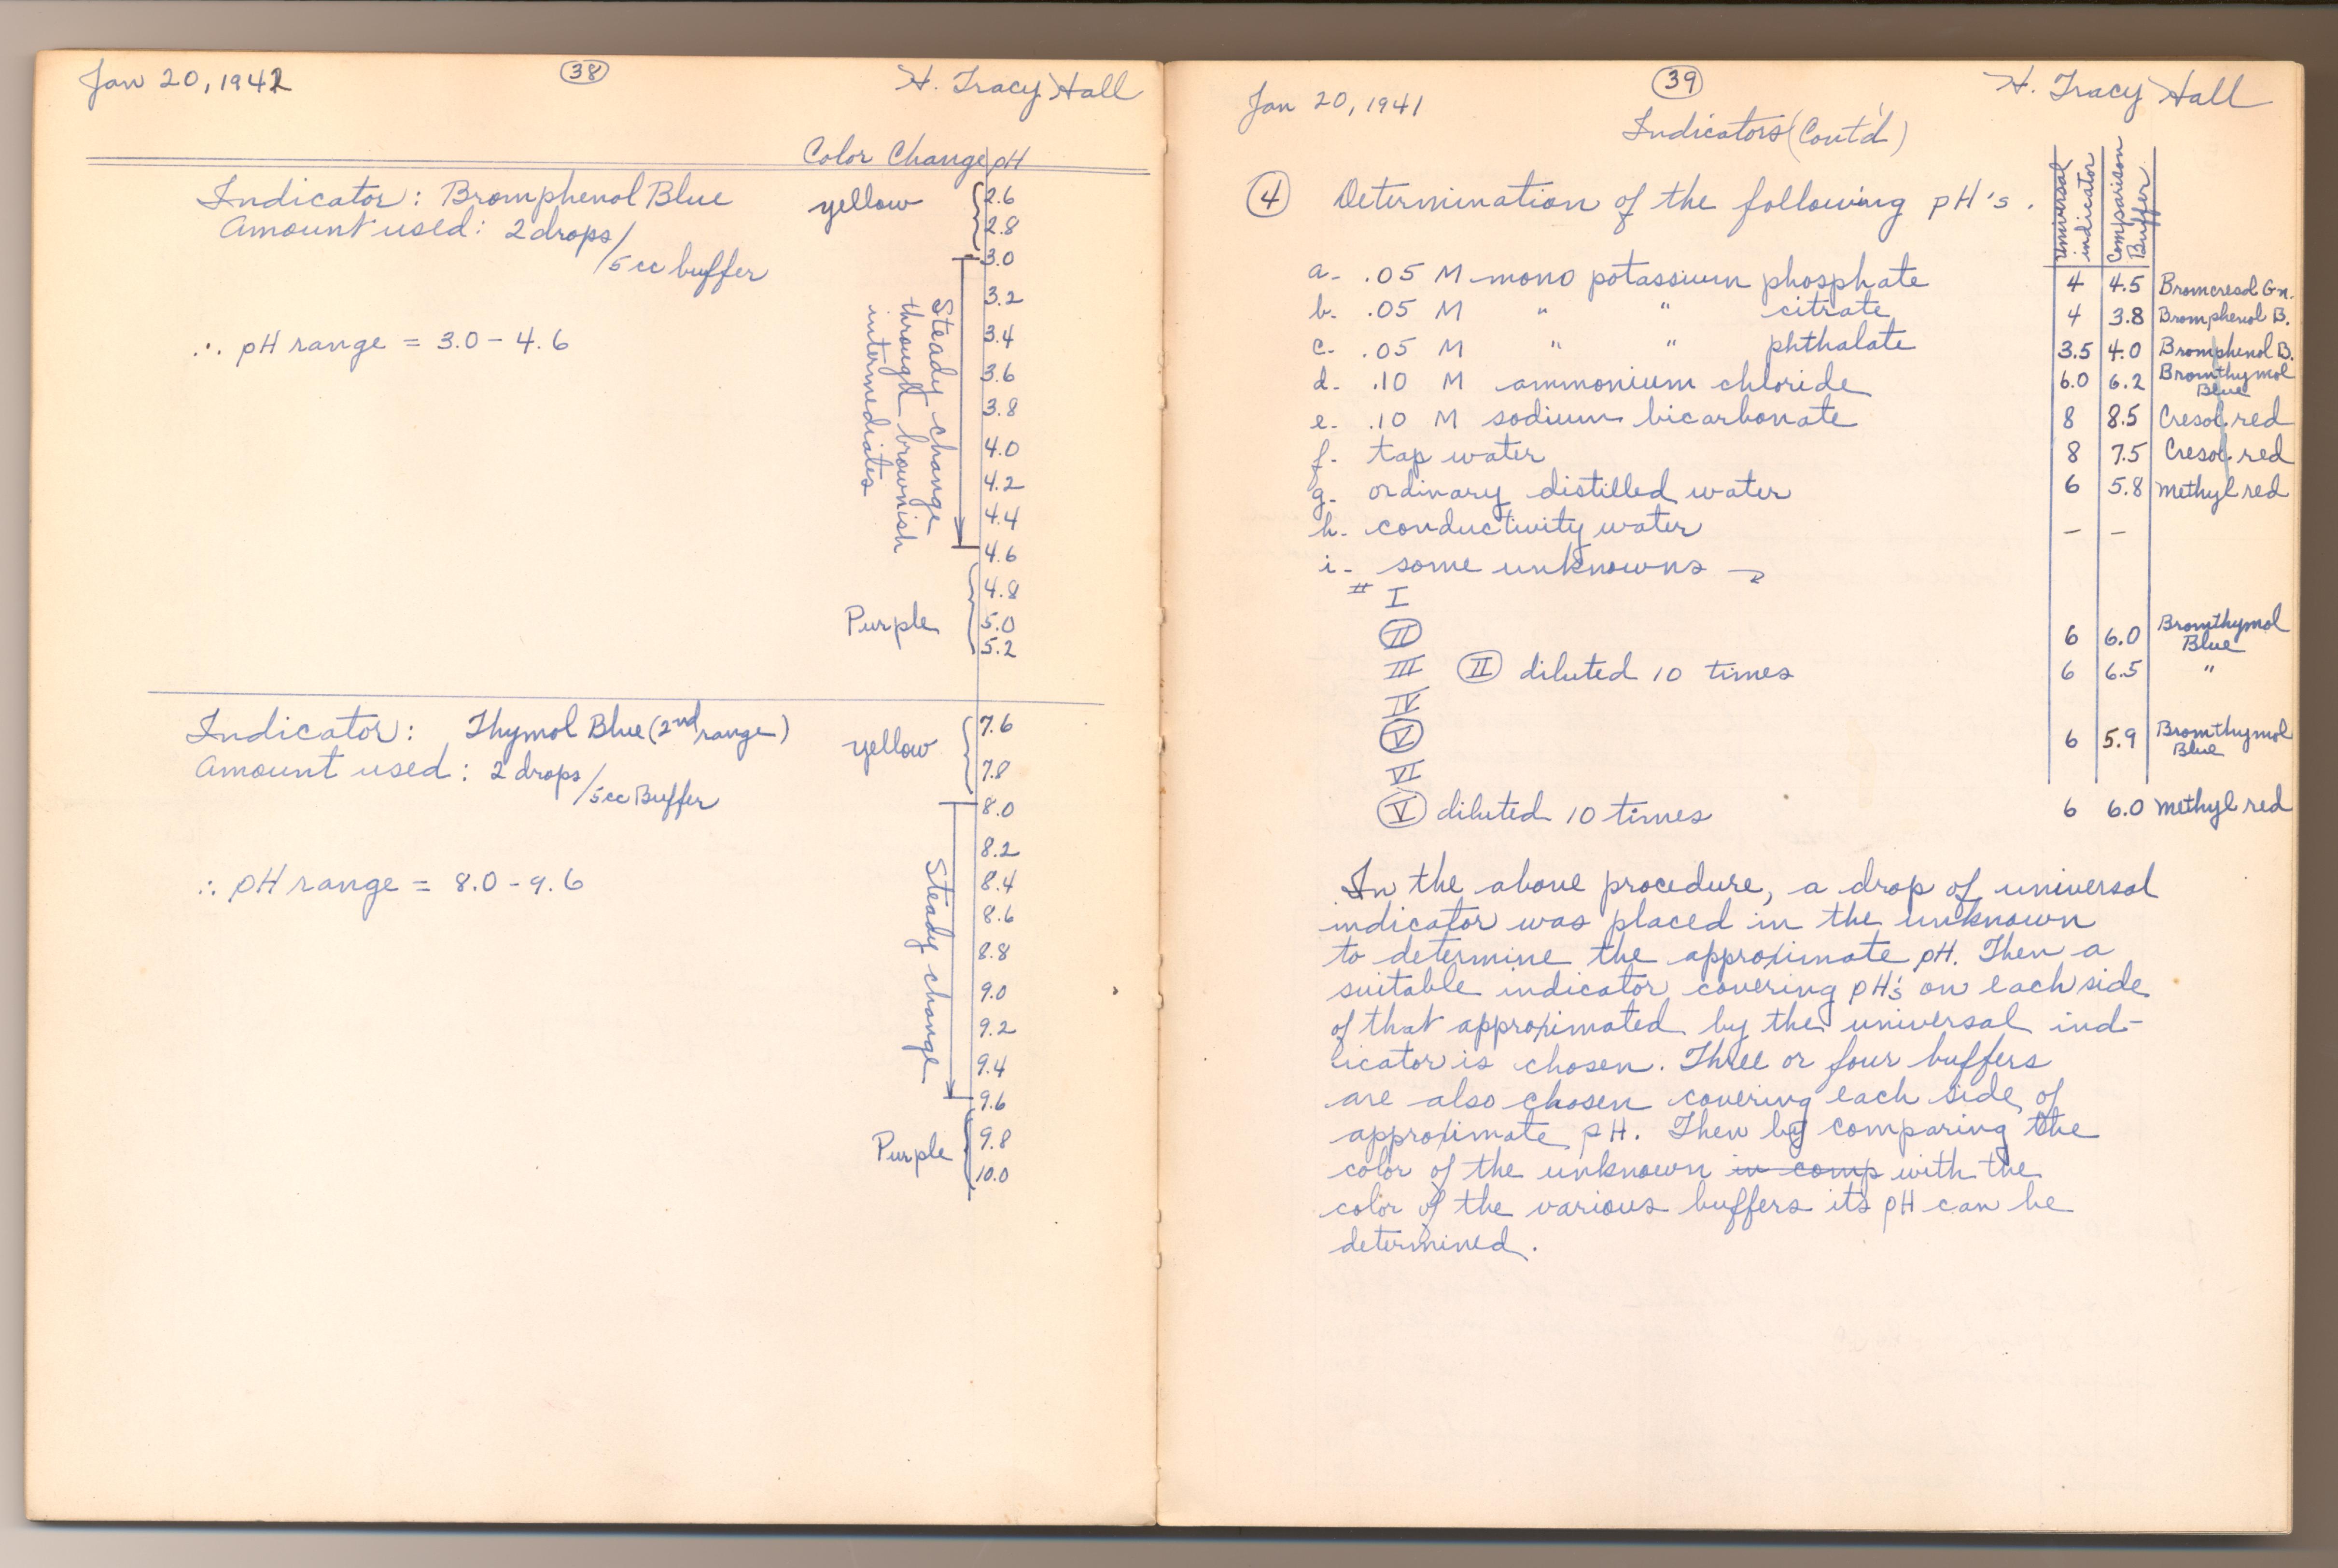 Jan 20, 1942
38
H. Tracy Hall
Color Change pH
Indicator: Bromphenol Blue
Amount used: 2 drops/5 cc buffer
∴ pH range = 3.0 - 4.6
yellow
2.6
2.8
3.0
Steady change
through brownish
intermediates
3.2
3.4
3.6
3.8
4.0
4.2
4.4
4.6
Purple
4.8
5.0
5.2
Indicator: Thymol Blue (2nd range)
Amount used: 2 drops/5cc Buffer
∴ pH range = 8.0 - 9.6
yellow
7.6
7.8
8.0
Steady change
8.2
8.4
8.6
8.8
9.0
9.2
9.4
9.6
Purple
9.8
10.0
Jan 20, 1941
39
H. Tracy Hall
Indicators (Cont'd)
universal indicator
Comparison Buffer
4 Determination of the following pH's.
a- .05 M mono potassium phosphate 4 4.5 Bromcresol Gn.
b- .05 M " " citrate 4 3.8 Bromphenol B.
c- .05 M " " phthalate 3.5 4.0 Bromphenol B.
d- .10 M ammonium chloride 6.0 6.2 Bromthymol Blue
e- .10 M sodium bicarbonate 8 8.5 Cresol red
f- tap water 8 7.5 Cresol red
g- ordinary distilled water 6 5.8 methyl red
h- conductivity water – –
i- some unknowns
# I
II 6 6.0 Bromthymol Blue
III II diluted 10 times 6 6.5 "
IV
V 6 5.9 Bromthymol Blue
VI
V diluted 10 times 6 6.0 methyl red
In the above procedure, a drop of universal
indicator was placed in the unknown
to determine the approximate pH. Then a
suitable indicator covering pH's on each side
of that approximated by the universal ind-
icator is chosen. Three or four buffers
are also chosen covering each side of
approximate pH. Then by comparing the
color of the unknown in comp with the
color of the various buffers its pH can be
determined.